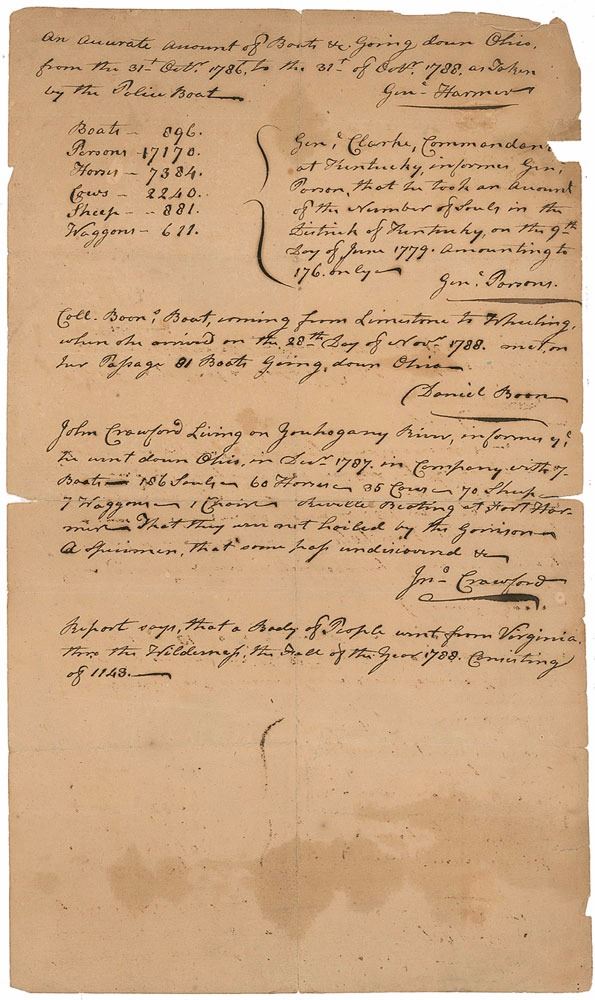 An Accurate Amount of Boats &c. Going down Ohio,
from the 31st Octr. 1786, to the 31st of Octr. 1788. as Taken
by the Police Boat
Genl. Harmer
Boats - 896.
Persons - 17170.
Horses - 7384.
Cows - 2240.
Sheep - - 881.
Waggons - 611.
Genl. Clarke, Commandant
at Kentucky, informes Genl.
Parson, that he took an Amount
of the Number of Souls in the
District of Kentucky, on the 9th
Day of June 1779. Amounting to
176. only
Genl. Parsons.
Coll. Boons Boat, coming from Limestone to Wheeling,
when she arrived on the 28th Day of Novr. 1788. met, on
her Passage 81 Boats Going down Ohio
Daniel Boon
John Crawford Living on Youhogany River, informes yt.
he went down Ohio, in Decr. 1787. in Company with 7-
Boats 186 Souls 60 Horses 35 Cows 70 Sheep
7 Waggons 1 Chair Reville Beating at Fort Har-
mer That they were not hailed by the Garrison
A Specimen, that some pass undiscovered &c
Jno. Crawford
Report says, that a Body of People went from Virginia.
thro the Wilderness, the Fall of the Year 1788. Consisting
of 1143.